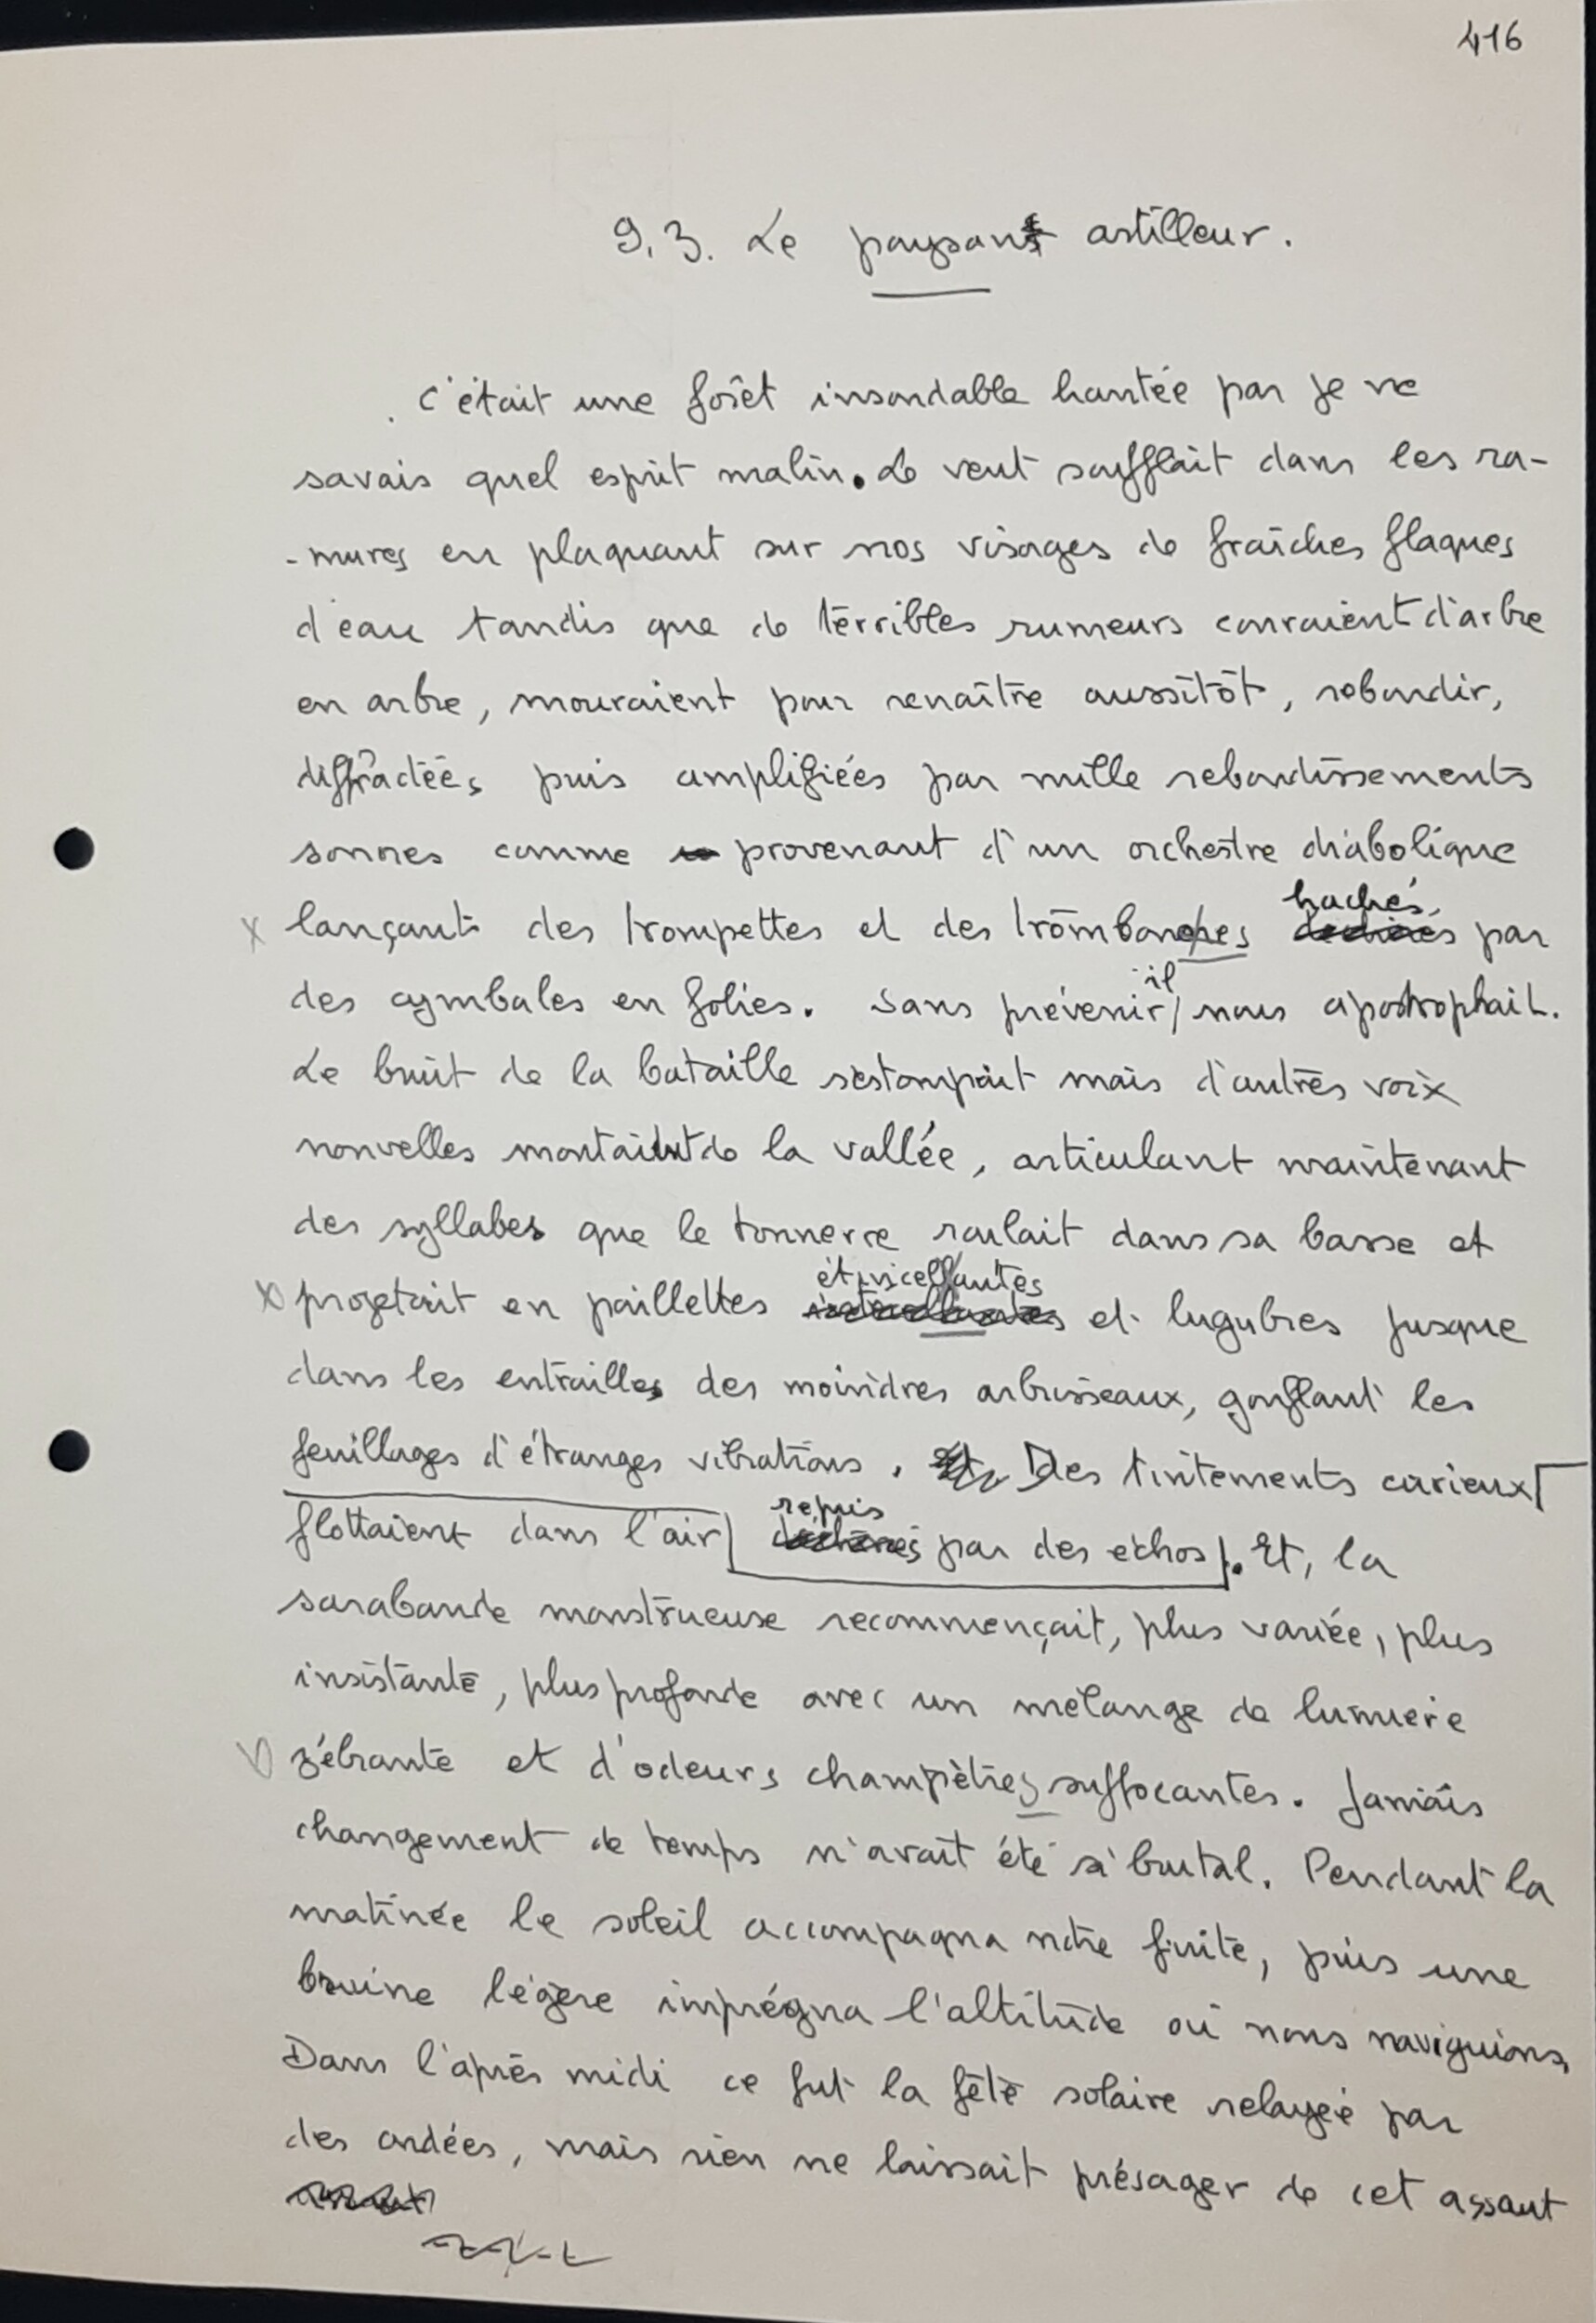 416
9.3. Le paysan artilleur.
C'était une forêt insondable hantée par je ne
savais quel esprit malin. Le vent soufflait dans les ra-
-mures en plaquant sur nos visages de fraîches flaques
d'eau tandis que de terribles rumeurs couraient d'arbre
en arbre, mouraient pour renaître aussitôt, rebondir,
diffractées puis amplifiées par mille rebondissements
sonores comme provenant d'un orchestre diabolique
lançant des trompettes et des trombones hachés par
des cymbales en folies. Sans prévenir il nous apostrophait.
Le bruit de la bataille s'estompait mais d'autres voix
nouvelles montaient de la vallée, articulant maintenant
des syllabes que le tonnerre roulait dans sa basse et
projetait en paillettes étincellantes et lugubres jusque
dans les entrailles des moindres arbrisseaux, gonflant les
feuillages d'étranges vibrations. Des tintements curieux
flottaient dans l'air repris par des echos. Et, la
sarabande monstrueuse recommençait, plus variée, plus
insistante, plus profonde avec un mélange de lumière
zébrante et d'odeurs champètres suffocantes. Jamais
changement de temps n'avait été si brutal. Pendant la
matinée le soleil accompagna notre fuite, puis une
bruine légère imprégna l'altitude où nous naviguions.
Dans l'après midi ce fut la fête solaire relayée par
des ondées, mais rien ne laissait présager de cet assaut